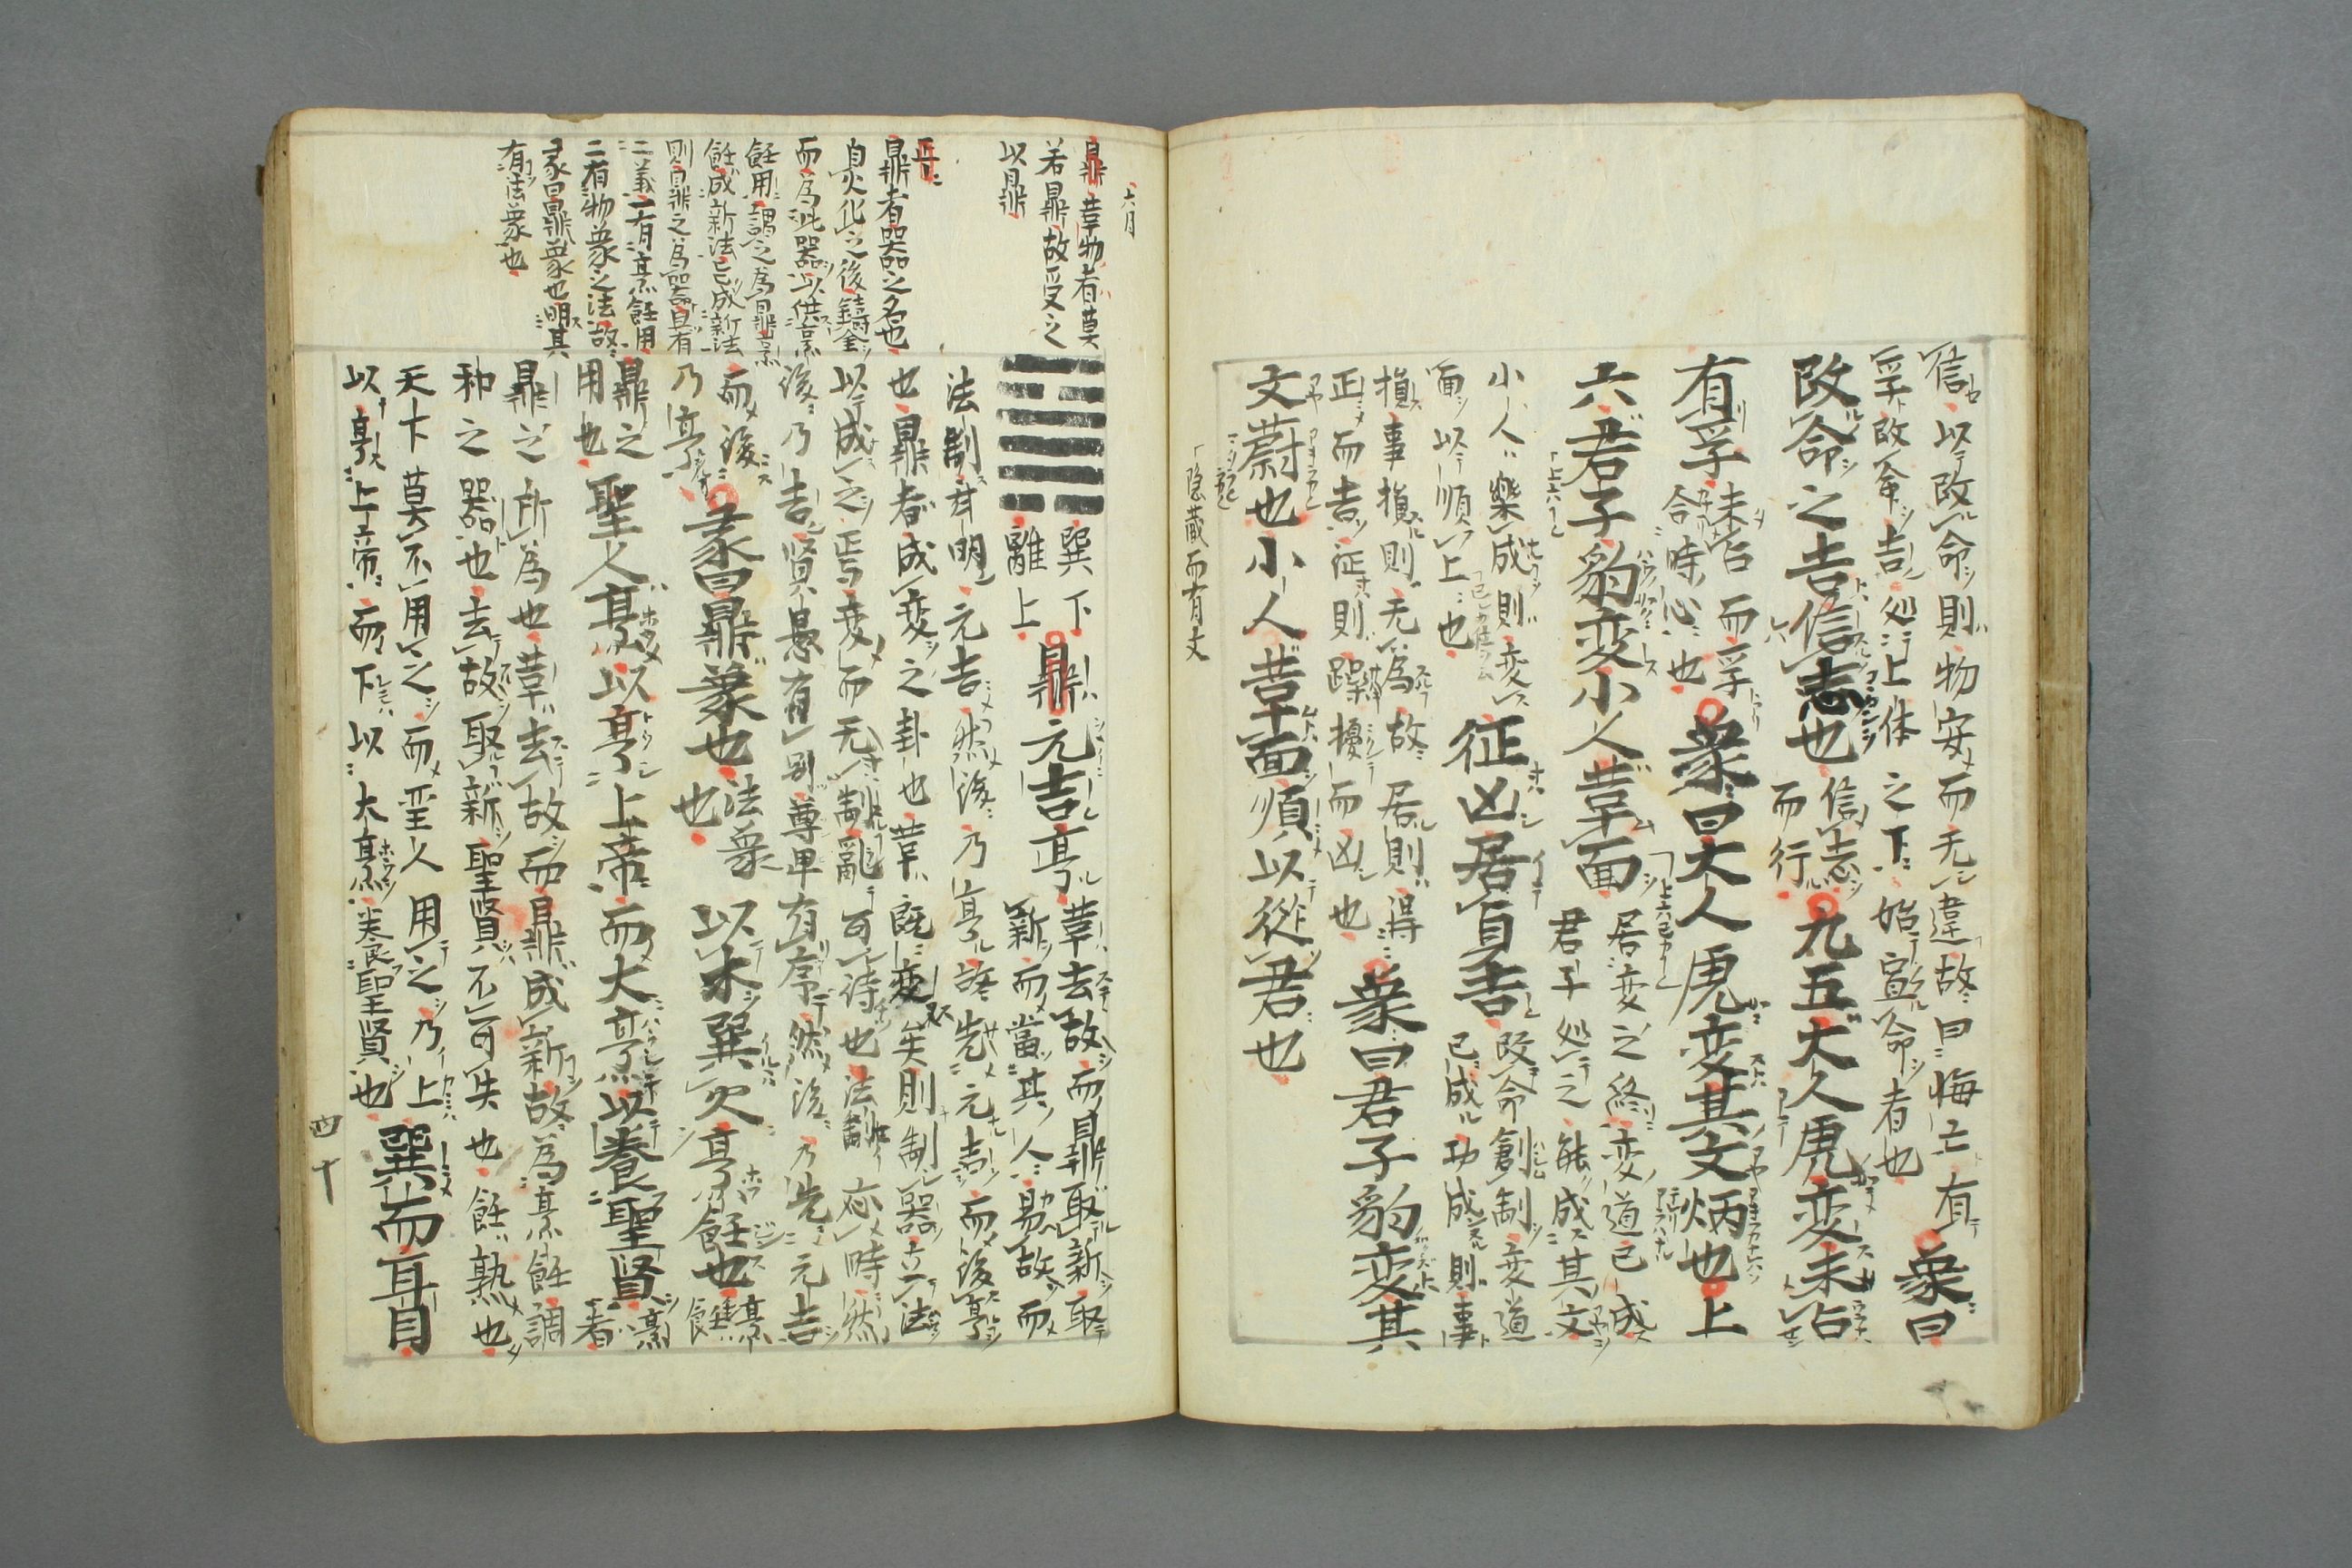 信以改命則物安而无違故曰悔亡有
孚改命吉処上体之下始宣命者也
象曰
改命之吉信志也
信志
而行
九五大人虎変未占
有孚
未占而孚
合時心也
象曰大人虎変其文炳也上
六君子豹変小人革面
居変之終変道已成
君子処之能成其文
小人楽成則変
面以順上也
征凶居貞吉
改命創制変道
已成功成則事
損事損則无為故居則得
正而吉征則躁擾而凶也
象曰君子豹変其
文蔚也小人革面順以従君也
隠蔵而有文
六月
鼎革物者莫
若鼎故受之
以鼎
正
鼎者器之名也
自火化之後鋳金
而為此器以供烹
飪用謂之為鼎烹
飪成新法已成新法
則鼎之為器且有
二義一有烹飪用
二有物象之法故
彖曰鼎象也明其
有法象也
巽下
離上
鼎元吉亨
革去故而鼎取新取
新而當其人易故而
法制斉明元吉然後乃亨故先元吉而後亨
也鼎者成変之卦也革既変矣則制器立法
以成之焉変而无制亂可待也法制応時然
後乃吉賢愚有別尊卑有序然後乃先元吉
而後
乃亨
彖曰鼎象也
法象
也
以木巽火亨飪也
烹
飪
鼎之
用也
聖人亨以亨上帝而大烹以養聖賢
烹
者
鼎之所為也革去故而鼎成新故為烹飪調
和之器也去故取新聖賢不可失也飪熟也
天下莫不用之而聖人用之乃上
以亨上帝而下以大烹養聖賢也
巽而耳目
四十